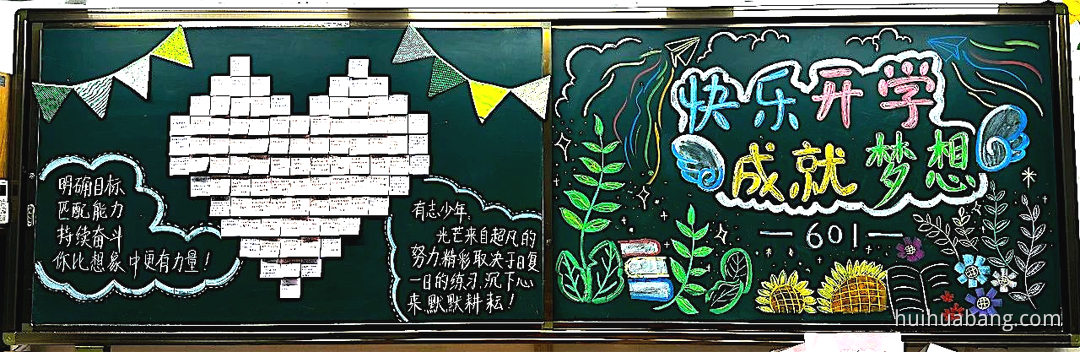 明确目标
匹配能力
持续奋斗
你比想象中更有力量！
有志少年，
光芒来自超凡的
努力，精彩取决于日复
一日的练习，沉下心
来，默默耕耘！
快乐开学
成就梦想
—601—
huihuabang.com